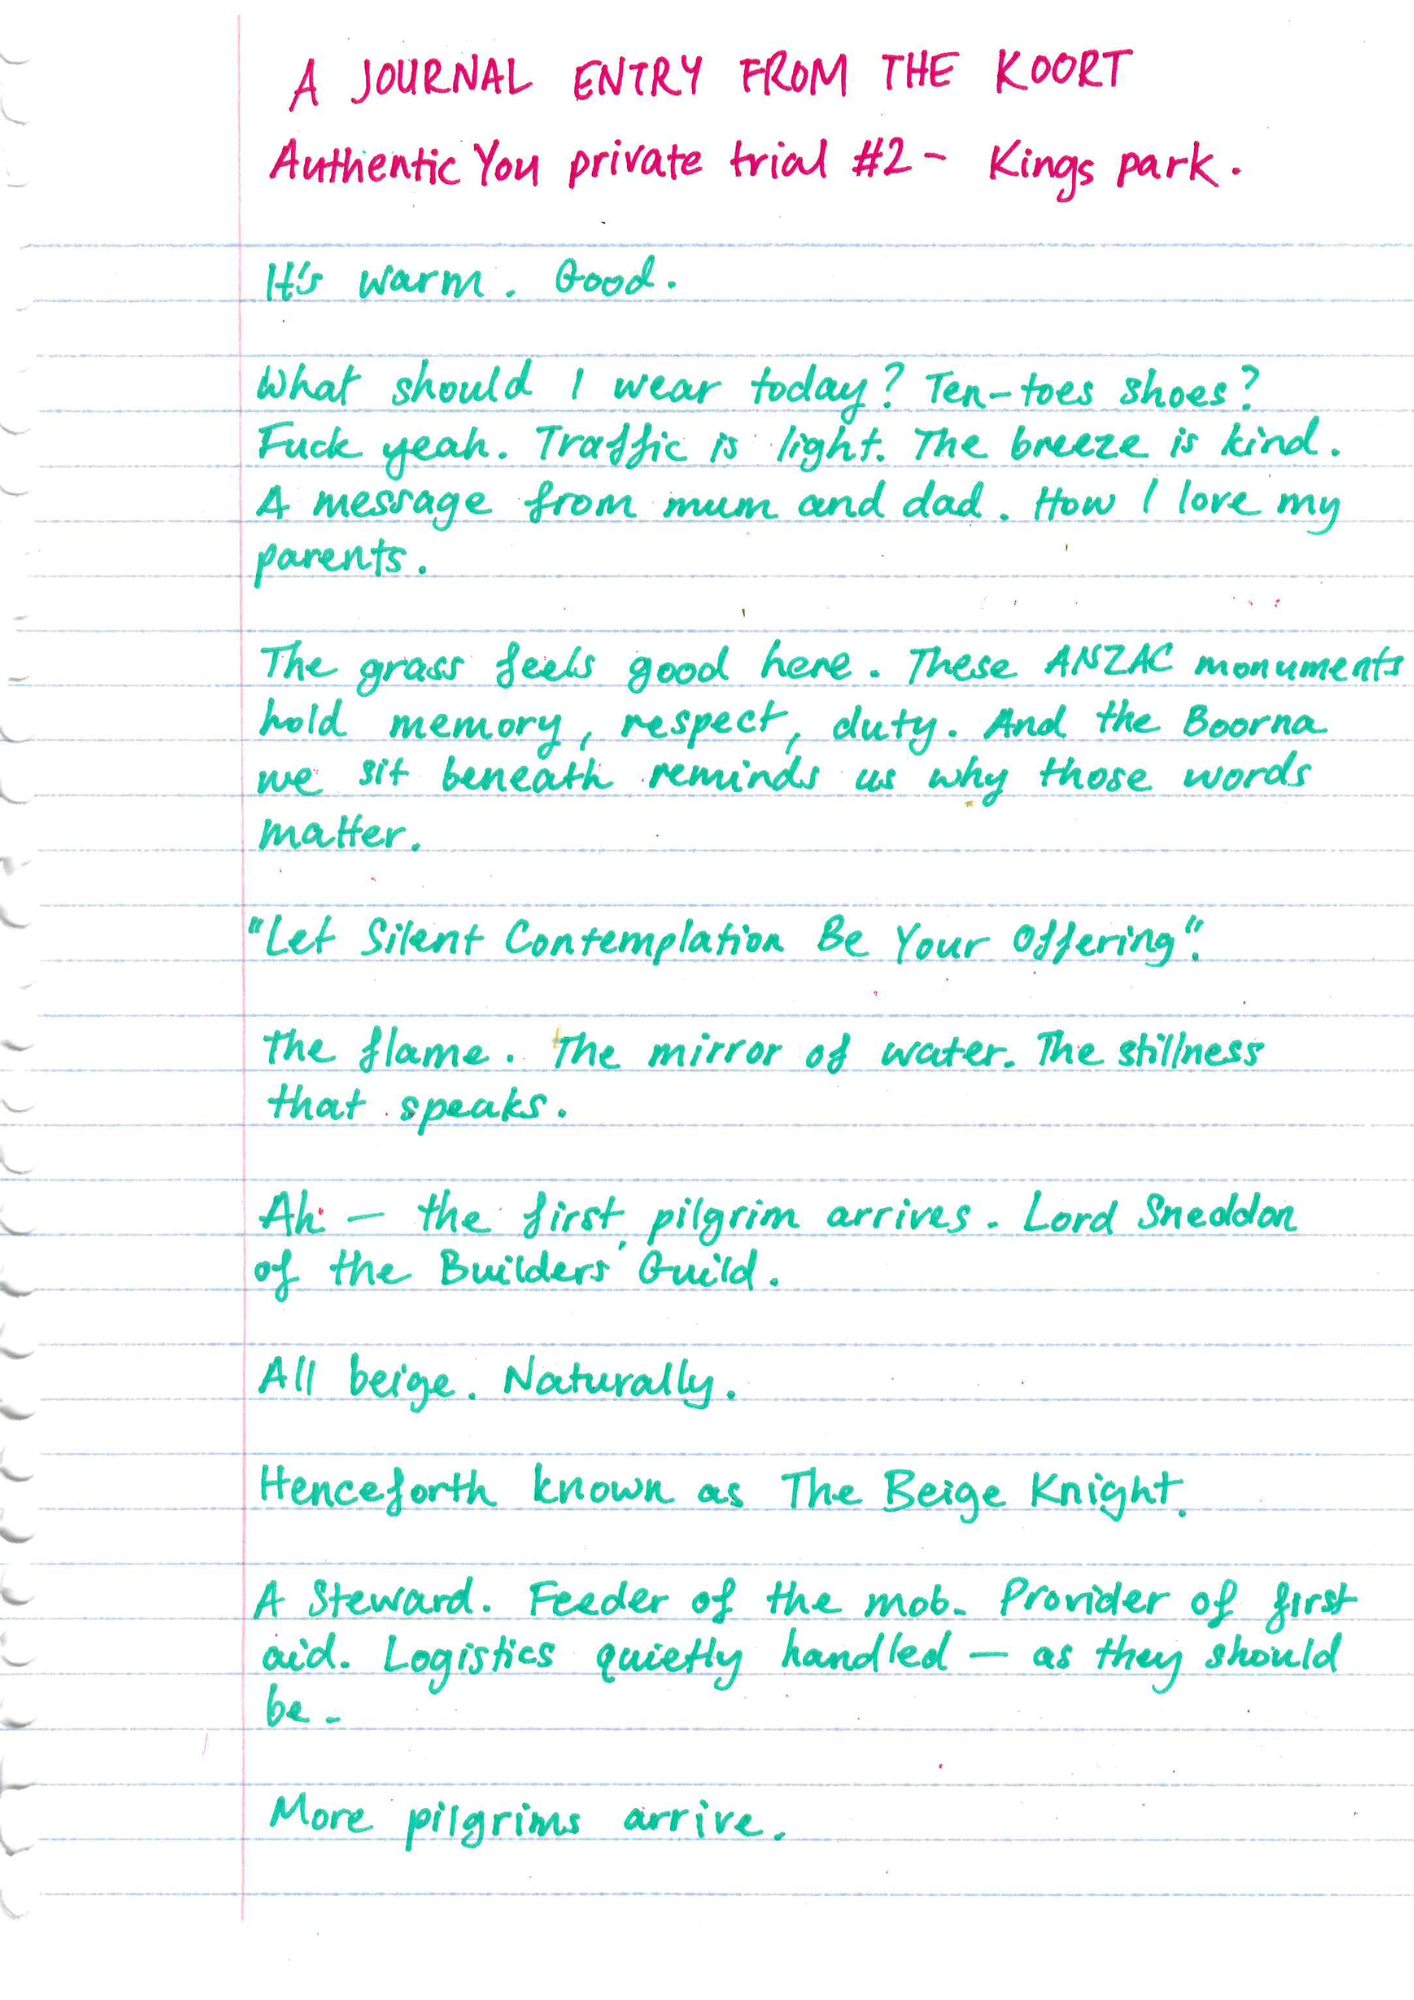 A JOURNAL ENTRY FROM THE KOORT
Authentic You private trial #2 - Kings park.
It's warm. Good.
What should I wear today? Ten-toes shoes?
Fuck yeah. Traffic is light. The breeze is kind.
A message from mum and dad. How I love my
parents.
The grass feels good here. These ANZAC monuments
hold memory, respect, duty. And the Boorna
we sit beneath reminds us why those words
matter.
"Let Silent Contemplation Be Your Offering".
the flame. The mirror of water. The stillness
that speaks.
Ah - the first pilgrim arrives. Lord Sneddon
of the Builders' Guild.
All beige. Naturally.
Henceforth known as The Beige Knight.
A Steward. Feeder of the mob. Provider of first
aid. Logistics quietly handled - as they should
be.
More pilgrims arrive.